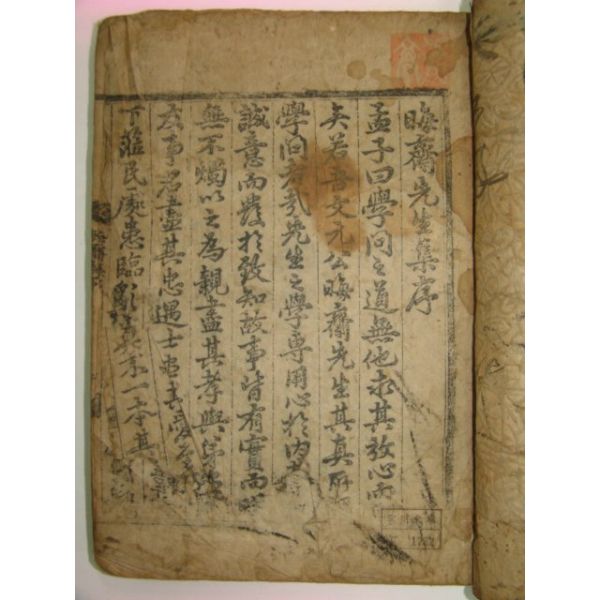 晦齋先生集序
孟子曰學問之道無他求其放心而
矣若吾文元公晦齋先生其真所
學問者哉先生之學專用心於內
誠意而發於致知故事皆有實而
無不燭以之為親盡其孝與
友事君盡其忠遇士
下蒞民處患臨一本其